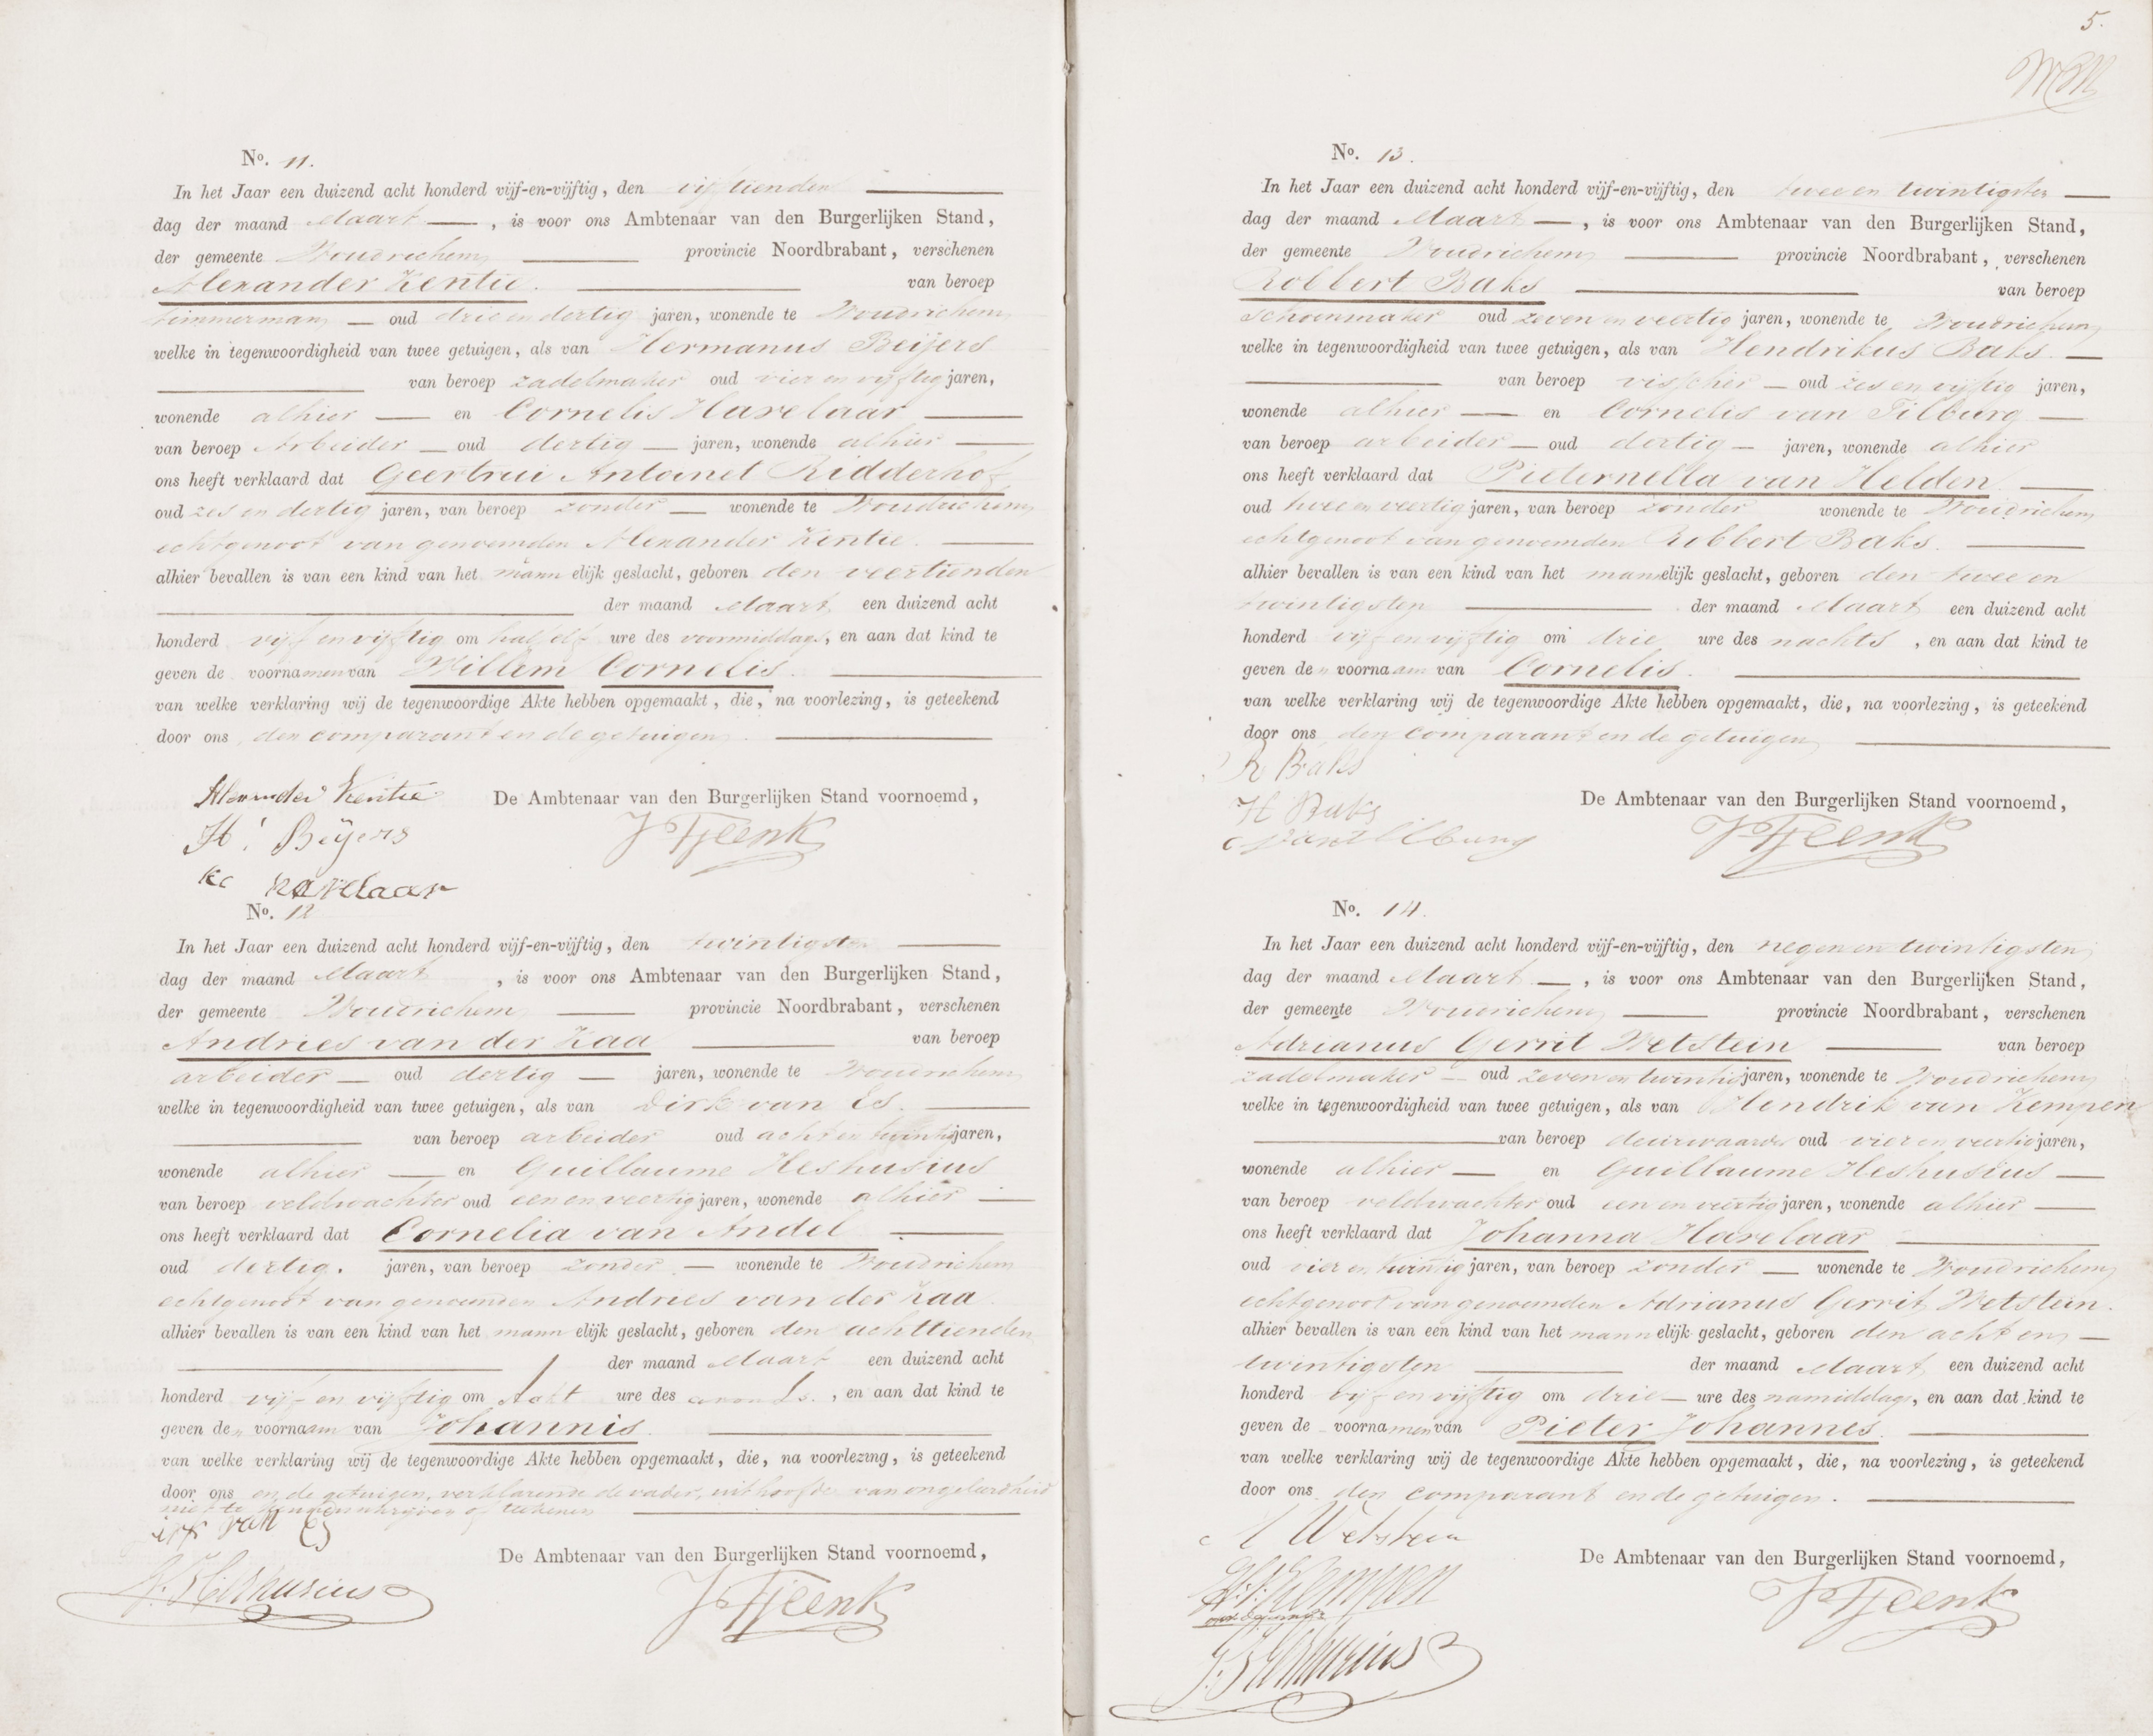 No. 11.
In het Jaar een duizend acht honderd vijf-en-vijftig, den vijftienden
dag der maand Maart, is voor ons Ambtenaar van den Burgerlijken Stand,
der gemeente Woudrichem provincie Noordbrabant, verschenen
Alexander Kentie. van beroep
timmerman oud drie en dertig jaren, wonende te Woudrichem
welke in tegenwoordigheid van twee getuigen, als van Hermanus Beijers
van beroep zadelmaker oud vier en vijftig jaren,
wonende alhier en Cornelis Havelaar
van beroep Arbeider oud dertig jaren, wonende alhier
ons heeft verklaard dat Geertrui Antonet Ridderhof
oud zes en dertig jaren, van beroep zonder wonende te Woudrichem
echtgenoot van genoemden Alexander Kentie.
alhier bevallen is van een kind van het mannelijk geslacht, geboren den veertienden
der maand Maart een duizend acht
honderd vijf en vijftig om half elf ure des voormiddags, en aan dat kind te
geven de voornamen van Willem Cornelis.
van welke verklaring wij de tegenwoordige Akte hebben opgemaakt, die, na voorlezing, is geteekend
door ons, den comparant en de getuigen.
Alexander Kentie
De Ambtenaar van den Burgerlijken Stand voornoemd,
H. Beijers
JTjeenk
Havelaar
No. 12
In het Jaar een duizend acht honderd vijf-en-vijftig, den twintigsten
dag der maand Maart, is voor ons Ambtenaar van den Burgerlijken Stand,
der gemeente Woudrichem provincie Noordbrabant, verschenen
Andries van der Zaa van beroep
arbeider oud dertig jaren, wonende te Woudrichem
welke in tegenwoordigheid van twee getuigen, als van Dirk van Es.
van beroep arbeider oud acht en twintig jaren,
wonende alhier en Guillaume Heshusius
van beroep veldwachter oud een en veertig jaren, wonende alhier
ons heeft verklaard dat Cornelia van Andel
oud dertig. jaren, van beroep zonder wonende te Woudrichem
echtgenoot van genoemden Andries van der Zaa
alhier bevallen is van een kind van het mannelijk geslacht, geboren den achttienden
der maand Maart een duizend acht
honderd vijf en vijftig om Acht ure des avonds., en aan dat kind te
geven de voornaam van Johannis.
van welke verklaring wij de tegenwoordige Akte hebben opgemaakt, die, na voorlezing, is geteekend
door ons en de getuigen, verklarende de vader, uit hoofde van ongeleerdheid
niet te kunnen schrijven of teekenen
Dirk van Es
De Ambtenaar van den Burgerlijken Stand voornoemd,
G. Heshusius
JTjeenk
5.
No. 13.
In het Jaar een duizend acht honderd vijf-en-vijftig, den twee en twintigsten
dag der maand Maart, is voor ons Ambtenaar van den Burgerlijken Stand,
der gemeente Woudrichem provincie Noordbrabant, verschenen
Robbert Baks van beroep
schoenmaker oud zeven en veertig jaren, wonende te Woudrichem
welke in tegenwoordigheid van twee getuigen, als van Hendrikus Baks.
van beroep visscher oud zes en vijftig jaren,
wonende alhier en Cornelis van Tilburg
van beroep arbeider oud dertig jaren, wonende alhier
ons heeft verklaard dat Pieternella van Helden
oud twee en veertig jaren, van beroep zonder wonende te Woudrichem
echtgenoot van genoemden Robbert Baks.
alhier bevallen is van een kind van het mannelijk geslacht, geboren den twee en
twintigsten der maand Maart een duizend acht
honderd vijf en vijftig om drie ure des nachts, en aan dat kind te
geven de voornaam van Cornelis.
van welke verklaring wij de tegenwoordige Akte hebben opgemaakt, die, na voorlezing, is geteekend
door ons, den comparant en de getuigen
R Baks
De Ambtenaar van den Burgerlijken Stand voornoemd,
H Baks
C van Tilburg
JTjeenk
No. 14.
In het Jaar een duizend acht honderd vijf-en-vijftig, den negen en twintigsten
dag der maand Maart, is voor ons Ambtenaar van den Burgerlijken Stand,
der gemeente Woudrichem provincie Noordbrabant, verschenen
Adrianus Gerrit Wetstein van beroep
zadelmaker oud zeven en twintig jaren, wonende te Woudrichem
welke in tegenwoordigheid van twee getuigen, als van Hendrik van Kempen
van beroep deurwaarder oud vier en veertig jaren,
wonende alhier en Guillaume Heshusius
van beroep veldwachter oud een en veertig jaren, wonende alhier
ons heeft verklaard dat Johanna Havelaar
oud vier en twintig jaren, van beroep zonder wonende te Woudrichem
echtgenoot van genoemden Adrianus Gerrit Wetstein.
alhier bevallen is van een kind van het mannelijk geslacht, geboren den acht en
twintigsten der maand Maart een duizend acht
honderd vijf en vijftig om drie ure des namiddags, en aan dat kind te
geven de voornamen van Pieter Johannes.
van welke verklaring wij de tegenwoordige Akte hebben opgemaakt, die, na voorlezing, is geteekend
door ons, den comparant en de getuigen.
A Wetstein
De Ambtenaar van den Burgerlijken Stand voornoemd,
Kempen
JTjeenk
G. Heshusius